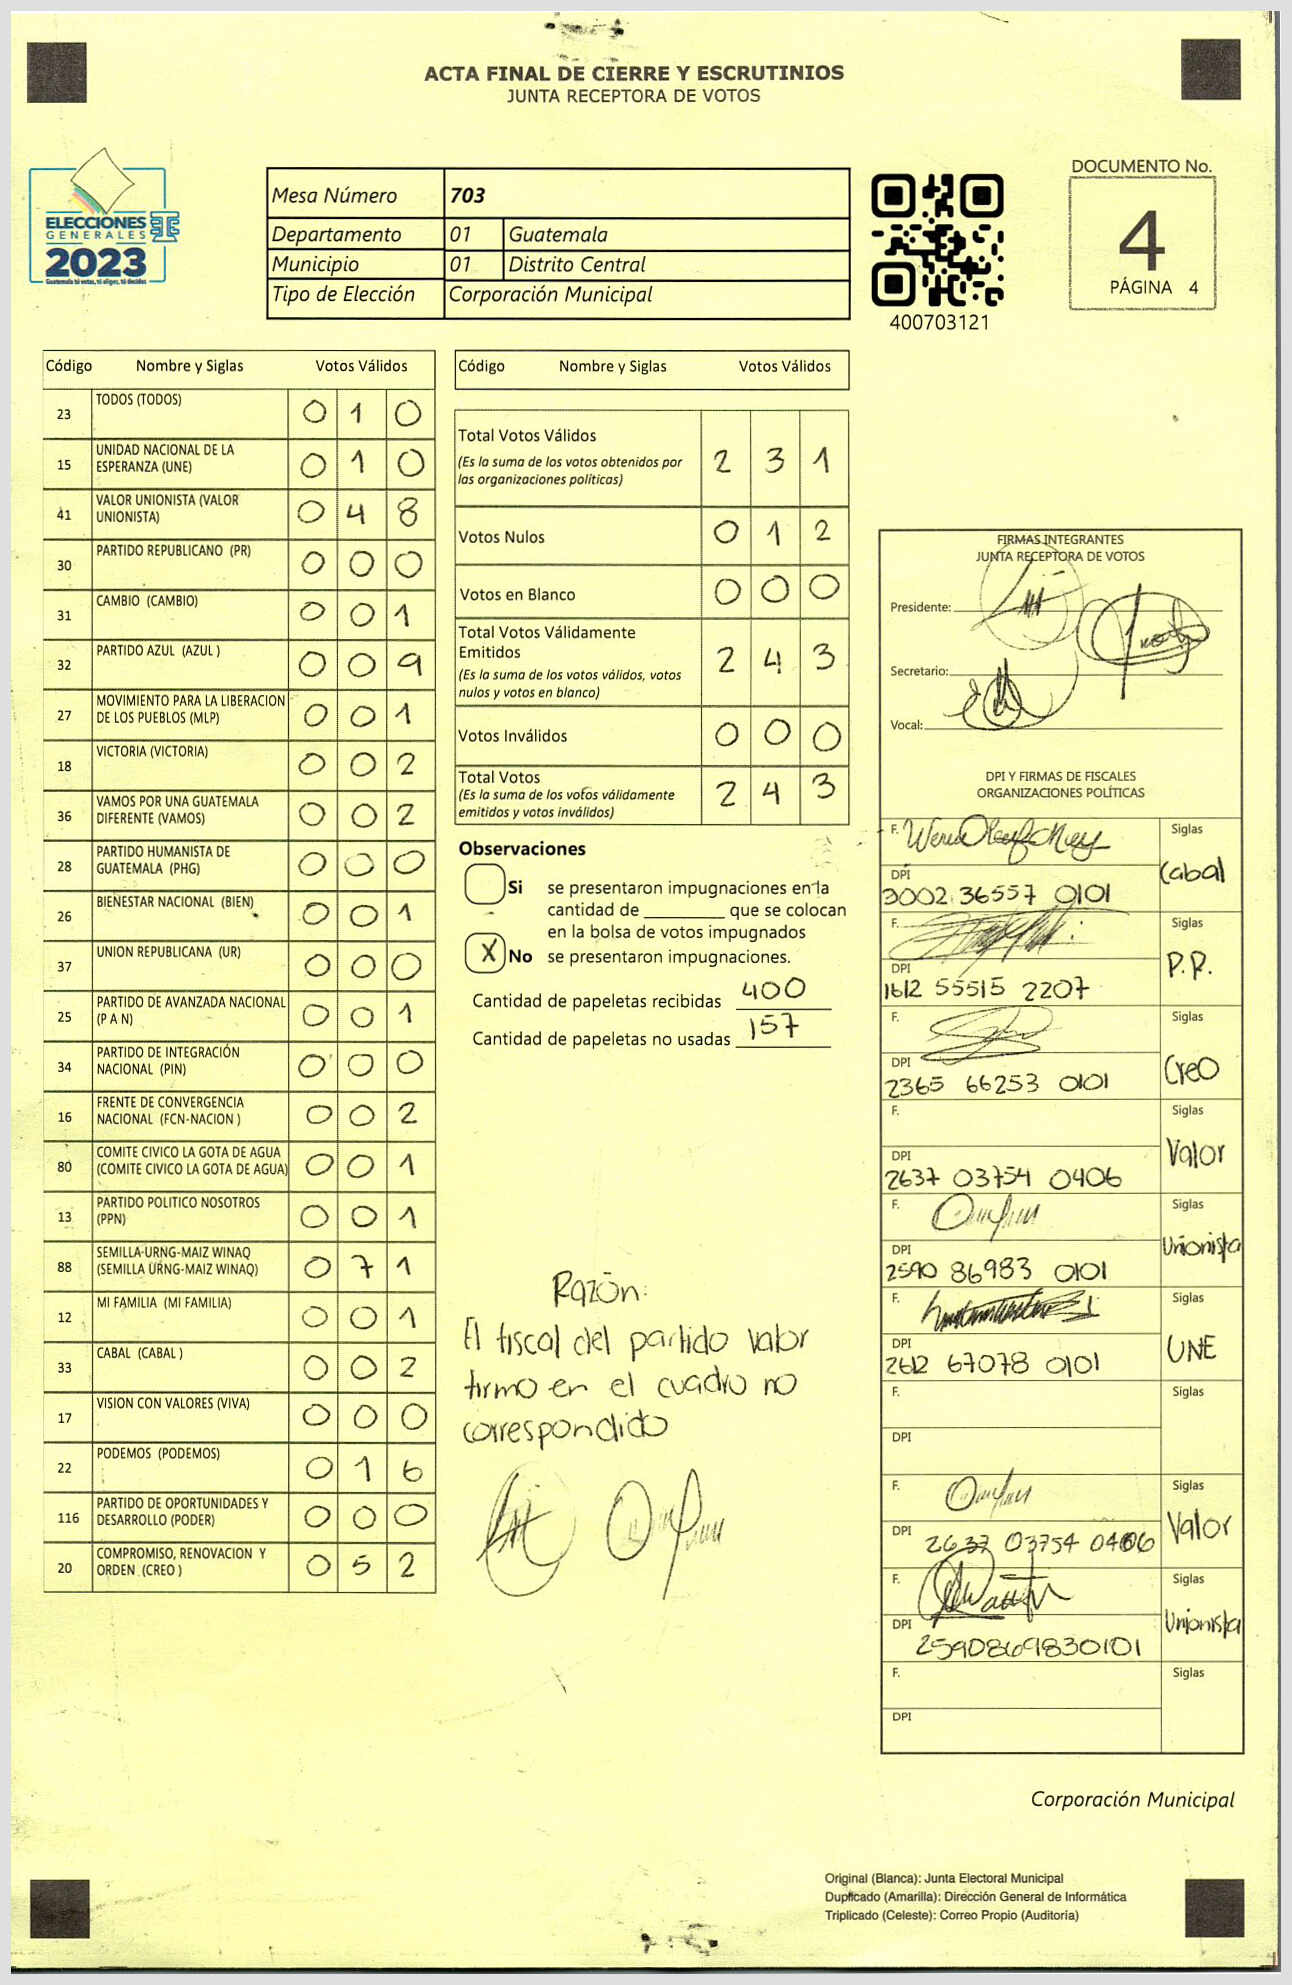 ACTA FINAL DE CIERRE Y ESCRUTINIOS
JUNTA RECEPTORA DE VOTOS
ELECCIONES
GENERALES
2023
Guatemala tú votas, tú eliges, tú decides
Mesa Número 703
Departamento 01 Guatemala
Municipio 01 Distrito Central
Tipo de Elección Corporación Municipal
400703121
DOCUMENTO No.
4
PÁGINA 4
Código Nombre y Siglas Votos Válidos
23 TODOS (TODOS) 0 1 0
15 UNIDAD NACIONAL DE LA
ESPERANZA (UNE) 0 1 0
41 VALOR UNIONISTA (VALOR
UNIONISTA) 0 4 8
30 PARTIDO REPUBLICANO (PR) 0 0 0
31 CAMBIO (CAMBIO) 0 0 1
32 PARTIDO AZUL (AZUL ) 0 0 9
27 MOVIMIENTO PARA LA LIBERACION
DE LOS PUEBLOS (MLP) 0 0 1
18 VICTORIA (VICTORIA) 0 0 2
36 VAMOS POR UNA GUATEMALA
DIFERENTE (VAMOS) 0 0 2
28 PARTIDO HUMANISTA DE
GUATEMALA (PHG) 0 0 0
26 BIENESTAR NACIONAL (BIEN) 0 0 1
37 UNION REPUBLICANA (UR) 0 0 0
25 PARTIDO DE AVANZADA NACIONAL
(P A N) 0 0 1
34 PARTIDO DE INTEGRACIÓN
NACIONAL (PIN) 0 0 0
16 FRENTE DE CONVERGENCIA
NACIONAL (FCN-NACION ) 0 0 2
80 COMITE CIVICO LA GOTA DE AGUA
(COMITE CIVICO LA GOTA DE AGUA) 0 0 1
13 PARTIDO POLITICO NOSOTROS
(PPN) 0 0 1
88 SEMILLA-URNG-MAIZ WINAQ
(SEMILLA URNG-MAIZ WINAQ) 0 7 1
12 MI FAMILIA (MI FAMILIA) 0 0 1
33 CABAL (CABAL ) 0 0 2
17 VISION CON VALORES (VIVA) 0 0 0
22 PODEMOS (PODEMOS) 0 1 6
116 PARTIDO DE OPORTUNIDADES Y
DESARROLLO (PODER) 0 0 0
20 COMPROMISO, RENOVACION Y
ORDEN (CREO ) 0 5 2
Código Nombre y Siglas Votos Válidos
Total Votos Válidos 2 3 1
(Es la suma de los votos obtenidos por
las organizaciones políticas)
Votos Nulos 0 1 2
Votos en Blanco 0 0 0
Total Votos Válidamente
Emitidos 2 4 3
(Es la suma de los votos válidos, votos
nulos y votos en blanco)
Votos Inválidos 0 0 0
Total Votos 2 4 3
(Es la suma de los votos válidamente
emitidos y votos inválidos)
Observaciones
Si se presentaron impugnaciones en la
cantidad de ________ que se colocan
en la bolsa de votos impugnados
X No se presentaron impugnaciones.
Cantidad de papeletas recibidas 400
Cantidad de papeletas no usadas 157
Razón:
El fiscal del partido valor
firmo en el cuadro no
correspondido
FIRMAS INTEGRANTES
JUNTA RECEPTORA DE VOTOS
Presidente:
Secretario:
Vocal:
DPI Y FIRMAS DE FISCALES
ORGANIZACIONES POLÍTICAS
F. Siglas
Cabal
DPI
3002 36557 0101
F. Siglas
P.R.
DPI
1612 55515 2207
F. Siglas
Creo
DPI
2365 66253 0101
F. Siglas
Valor
DPI
2637 03754 0406
F. Siglas
Unionista
DPI
2590 86983 0101
F. Siglas
UNE
DPI
2612 67078 0101
F. Siglas
DPI
F. Siglas
Valor
DPI
2637 03754 0406
F. Siglas
Unionista
DPI
2590869830101
F. Siglas
DPI
Corporación Municipal
Original (Blanca): Junta Electoral Municipal
Duplicado (Amarilla): Dirección General de Informática
Triplicado (Celeste): Correo Propio (Auditoría)